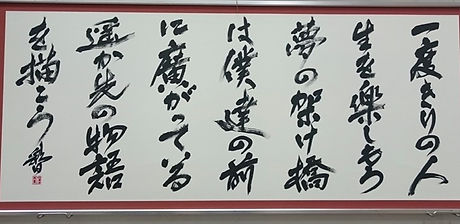 一度きりの人
生を楽しもう
夢の架け橋
は僕達の前
に廣がっている
遥か先の物語
を描こう